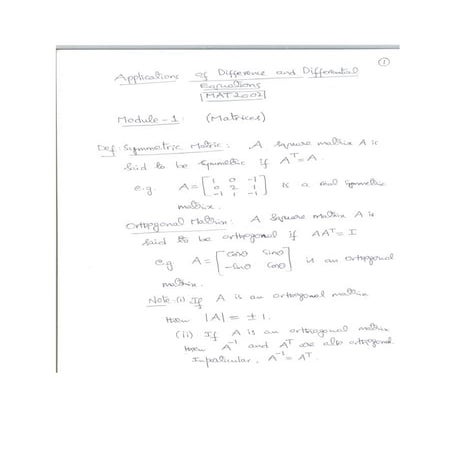 1
Applications of Difference and Differential
Equations
[MAT2002]
Module - 1 : (Matrices)
Def: Symmetric Matrix : A square matrix A is
said to be symmetric if A^T = A.
e.g. A = [1 0 -1; 0 2 1; -1 1 -1] is a real symmetric
matrix.
Orthogonal Matrix : A square matrix A is
said to be orthogonal if AA^T = I
e.g. A = [cosθ sinθ; -sinθ cosθ] is an orthogonal
matrix.
Note: (i) If A is an orthogonal matrix
then |A| = ±1.
(ii) If A is an orthogonal matrix
then A^-1 and A^T are also orthogonal.
In particular, A^-1 = A^T.